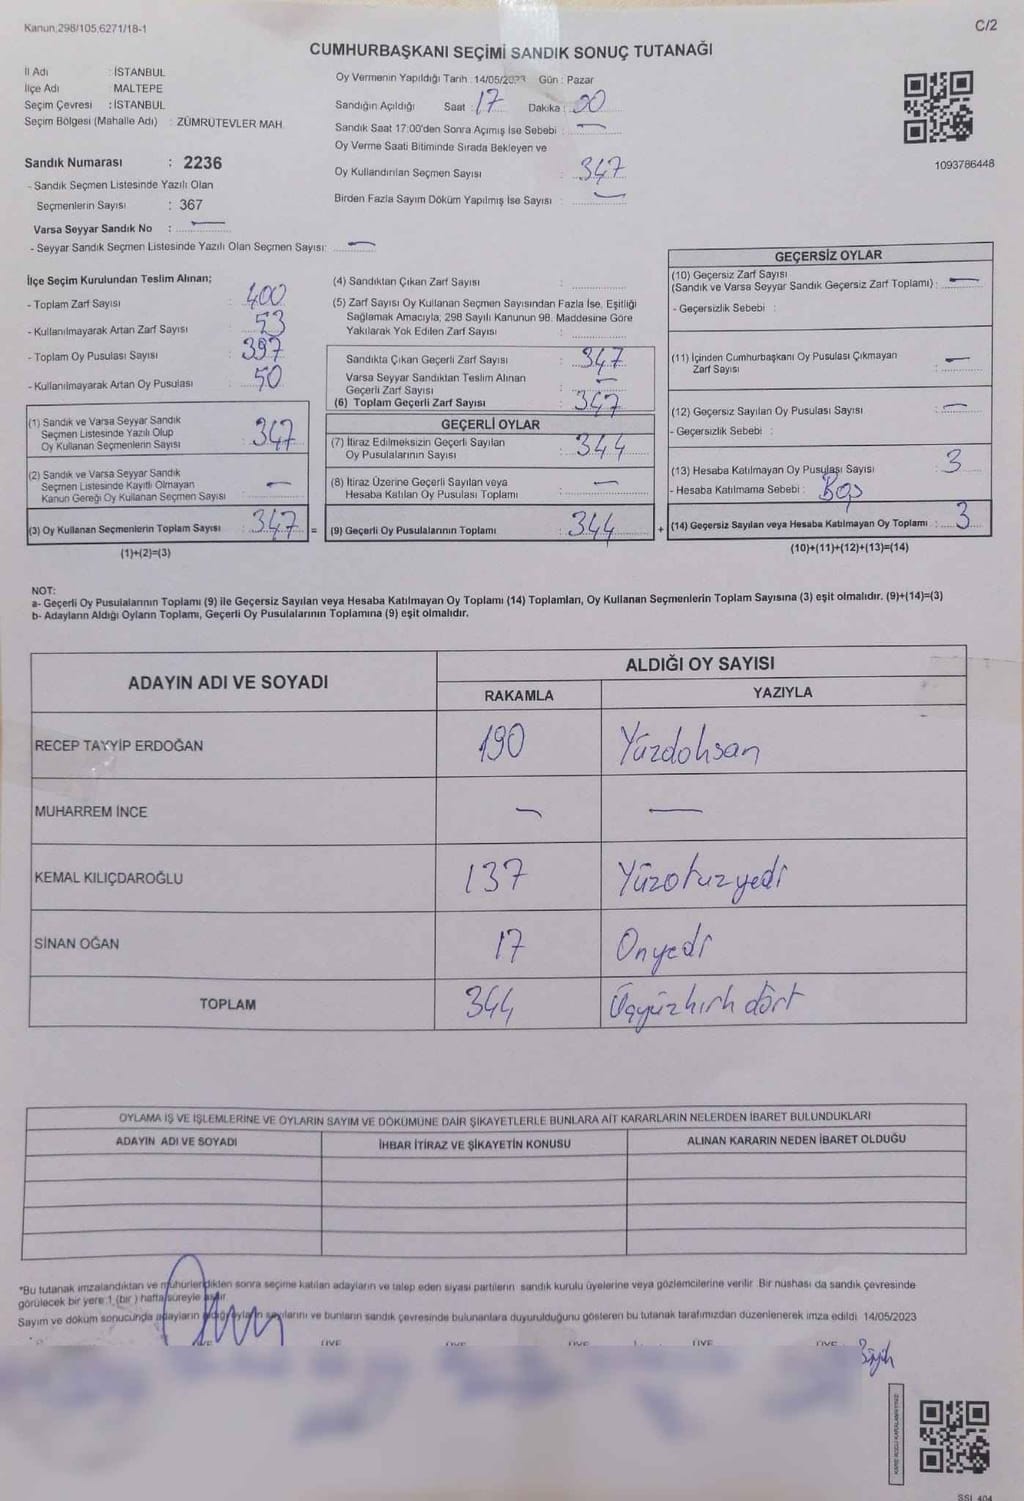 Kanun.298/105,6271/18-1
C/2
CUMHURBAŞKANI SEÇİMİ SANDIK SONUÇ TUTANAĞI
İl Adı : İSTANBUL
İlçe Adı MALTEPE
Seçim Çevresi : İSTANBUL
Seçim Bölgesi (Mahalle Adı) : ZÜMRÜTEVLER MAH.
Sandık Numarası : 2236
- Sandık Seçmen Listesinde Yazılı Olan
Seçmenlerin Sayısı : 367
Varsa Seyyar Sandık No : —
- Seyyar Sandık Seçmen Listesinde Yazılı Olan Seçmen Sayısı: —
Oy Vermenin Yapıldığı Tarih : 14/05/2023 Gün : Pazar
Sandığın Açıldığı Saat : 17 Dakika : 00
Sandık Saat 17:00'den Sonra Açımış İse Sebebi : —
Oy Verme Saati Bitiminde Sırada Bekleyen ve
Oy Kullandırılan Seçmen Sayısı : 347
Birden Fazla Sayım Döküm Yapılmış İse Sayısı : —
1093786448
İlçe Seçim Kurulundan Teslim Alınan;
- Toplam Zarf Sayısı : 400
- Kullanılmayarak Artan Zarf Sayısı : 53
- Toplam Oy Pusulası Sayısı : 397
- Kullanılmayarak Artan Oy Pusulası : 50
(1) Sandık ve Varsa Seyyar Sandık
Seçmen Listesinde Yazılı Olup
Oy Kullanan Seçmenlerin Sayısı : 347
(2) Sandık ve Varsa Seyyar Sandık
Seçmen Listesinde Kayıtlı Olmayan
Kanun Gereği Oy Kullanan Seçmen Sayısı : —
(3) Oy Kullanan Seçmenlerin Toplam Sayısı : 347 =
(1)+(2)=(3)
(4) Sandıktan Çıkan Zarf Sayısı :
(5) Zarf Sayısı Oy Kullanan Seçmen Sayısından Fazla İse, Eşitliği
Sağlamak Amacıyla; 298 Sayılı Kanunun 98. Maddesine Göre
Yakılarak Yok Edilen Zarf Sayısı :
Sandıkta Çıkan Geçerli Zarf Sayısı : 347
Varsa Seyyar Sandıktan Teslim Alınan
Geçerli Zarf Sayısı : —
(6) Toplam Geçerli Zarf Sayısı : 347
GEÇERLİ OYLAR
(7) İtiraz Edilmeksizin Geçerli Sayılan
Oy Pusulalarının Sayısı : 344
(8) İtiraz Üzerine Geçerli Sayılan veya
Hesaba Katılan Oy Pusulası Toplamı : —
(9) Geçerli Oy Pusulalarının Toplamı : 344 +
GEÇERSİZ OYLAR
(10) Geçersiz Zarf Sayısı
(Sandık ve Varsa Seyyar Sandık Geçersiz Zarf Toplamı) : —
- Geçersizlik Sebebi :
(11) İçinden Cumhurbaşkanı Oy Pusulası Çıkmayan
Zarf Sayısı : —
(12) Geçersiz Sayılan Oy Pusulası Sayısı : —
- Geçersizlik Sebebi :
(13) Hesaba Katılmayan Oy Pusulası Sayısı : 3
- Hesaba Katılmama Sebebi : Boş
(14) Geçersiz Sayılan veya Hesaba Katılmayan Oy Toplamı : 3
(10)+(11)+(12)+(13)=(14)
NOT:
a- Geçerli Oy Pusulalarının Toplamı (9) ile Geçersiz Sayılan veya Hesaba Katılmayan Oy Toplamı (14) Toplamları, Oy Kullanan Seçmenlerin Toplam Sayısına (3) eşit olmalıdır. (9)+(14)=(3)
b- Adayların Aldığı Oyların Toplamı, Geçerli Oy Pusulalarının Toplamına (9) eşit olmalıdır.
ADAYIN ADI VE SOYADI
ALDIĞI OY SAYISI
RAKAMLA YAZIYLA
RECEP TAYYİP ERDOĞAN 190 Yüzdoksan
MUHARREM İNCE — —
KEMAL KILIÇDAROĞLU 137 Yüzotuzyedi
SİNAN OĞAN 17 Onyedi
TOPLAM 344 Üçyüzkırk dört
OYLAMA İŞ VE İŞLEMLERİNE VE OYLARIN SAYIM VE DÖKÜMÜNE DAİR ŞİKAYETLERLE BUNLARA AİT KARARLARIN NELERDEN İBARET BULUNDUKLARI
ADAYIN ADI VE SOYADI İHBAR İTİRAZ VE ŞİKAYETİN KONUSU ALINAN KARARIN NEDEN İBARET OLDUĞU
*Bu tutanak imzalandıktan ve mühürlendikten sonra seçime katılan adayların ve talep eden siyasi partilerin sandık kurulu üyelerine veya gözlemcilerine verilir. Bir nüshası da sandık çevresinde
görülecek bir yere 1 (bir) hafta süreyle asılır.
Sayım ve döküm sonucunda adayların aldığı oyların sayılarını ve bunların sandık çevresinde bulunanlara duyurulduğunu gösteren bu tutanak tarafımızdan düzenlenerek imza edildi 14/05/2023
ÜYE ÜYE ÜYE ÜYE ÜYE
SSI_404